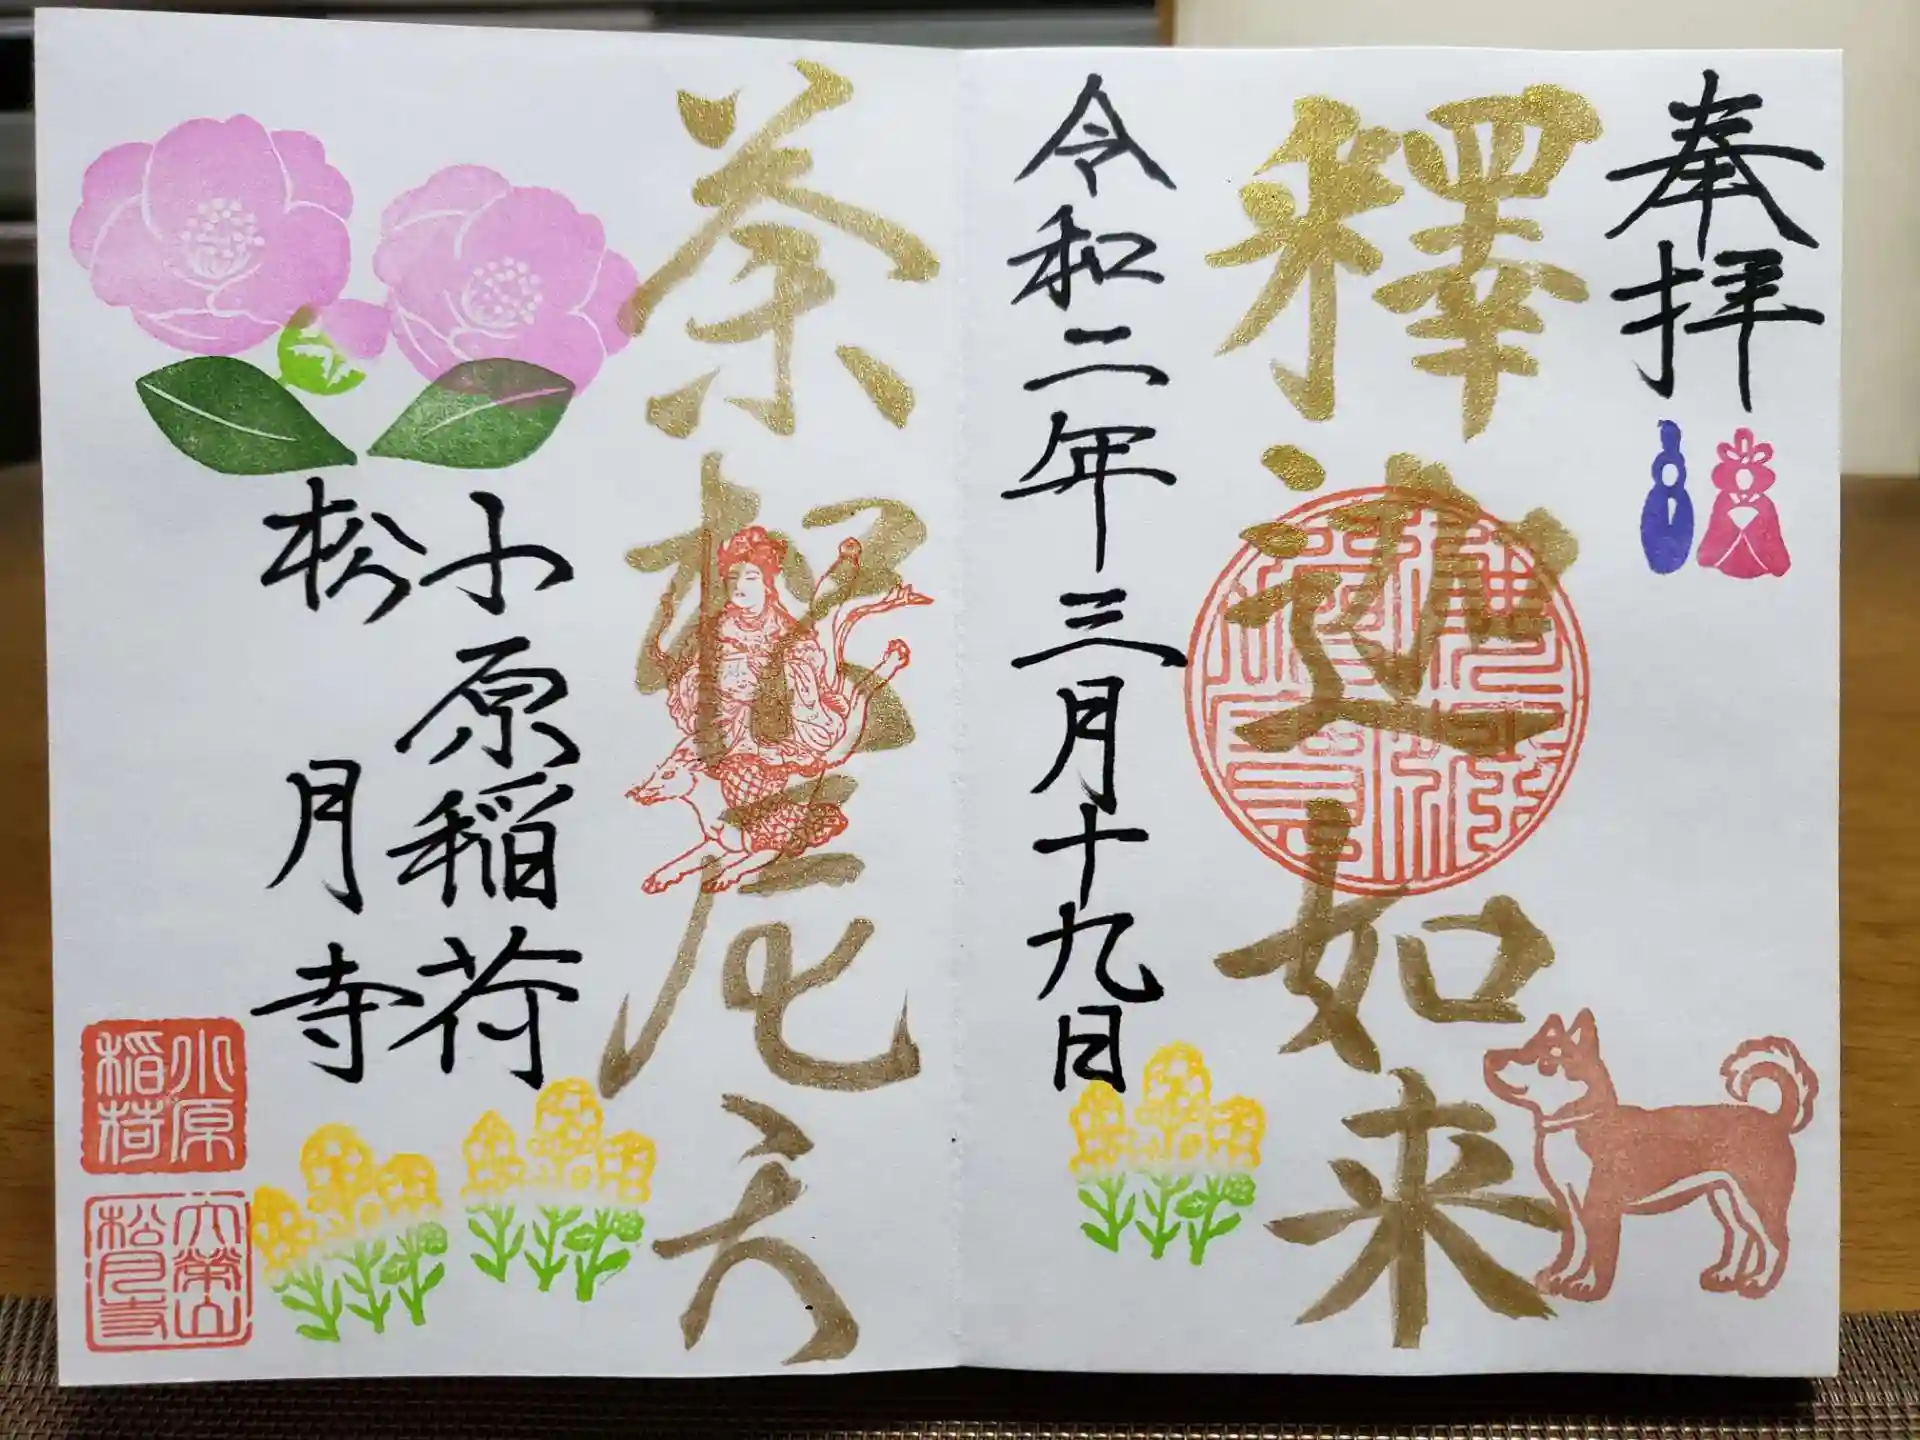 奉拝
釋迦如来
令和二年三月十九日
荼枳尼天
小原稲荷
松月寺
小原
稲荷
大榮山
松月寺